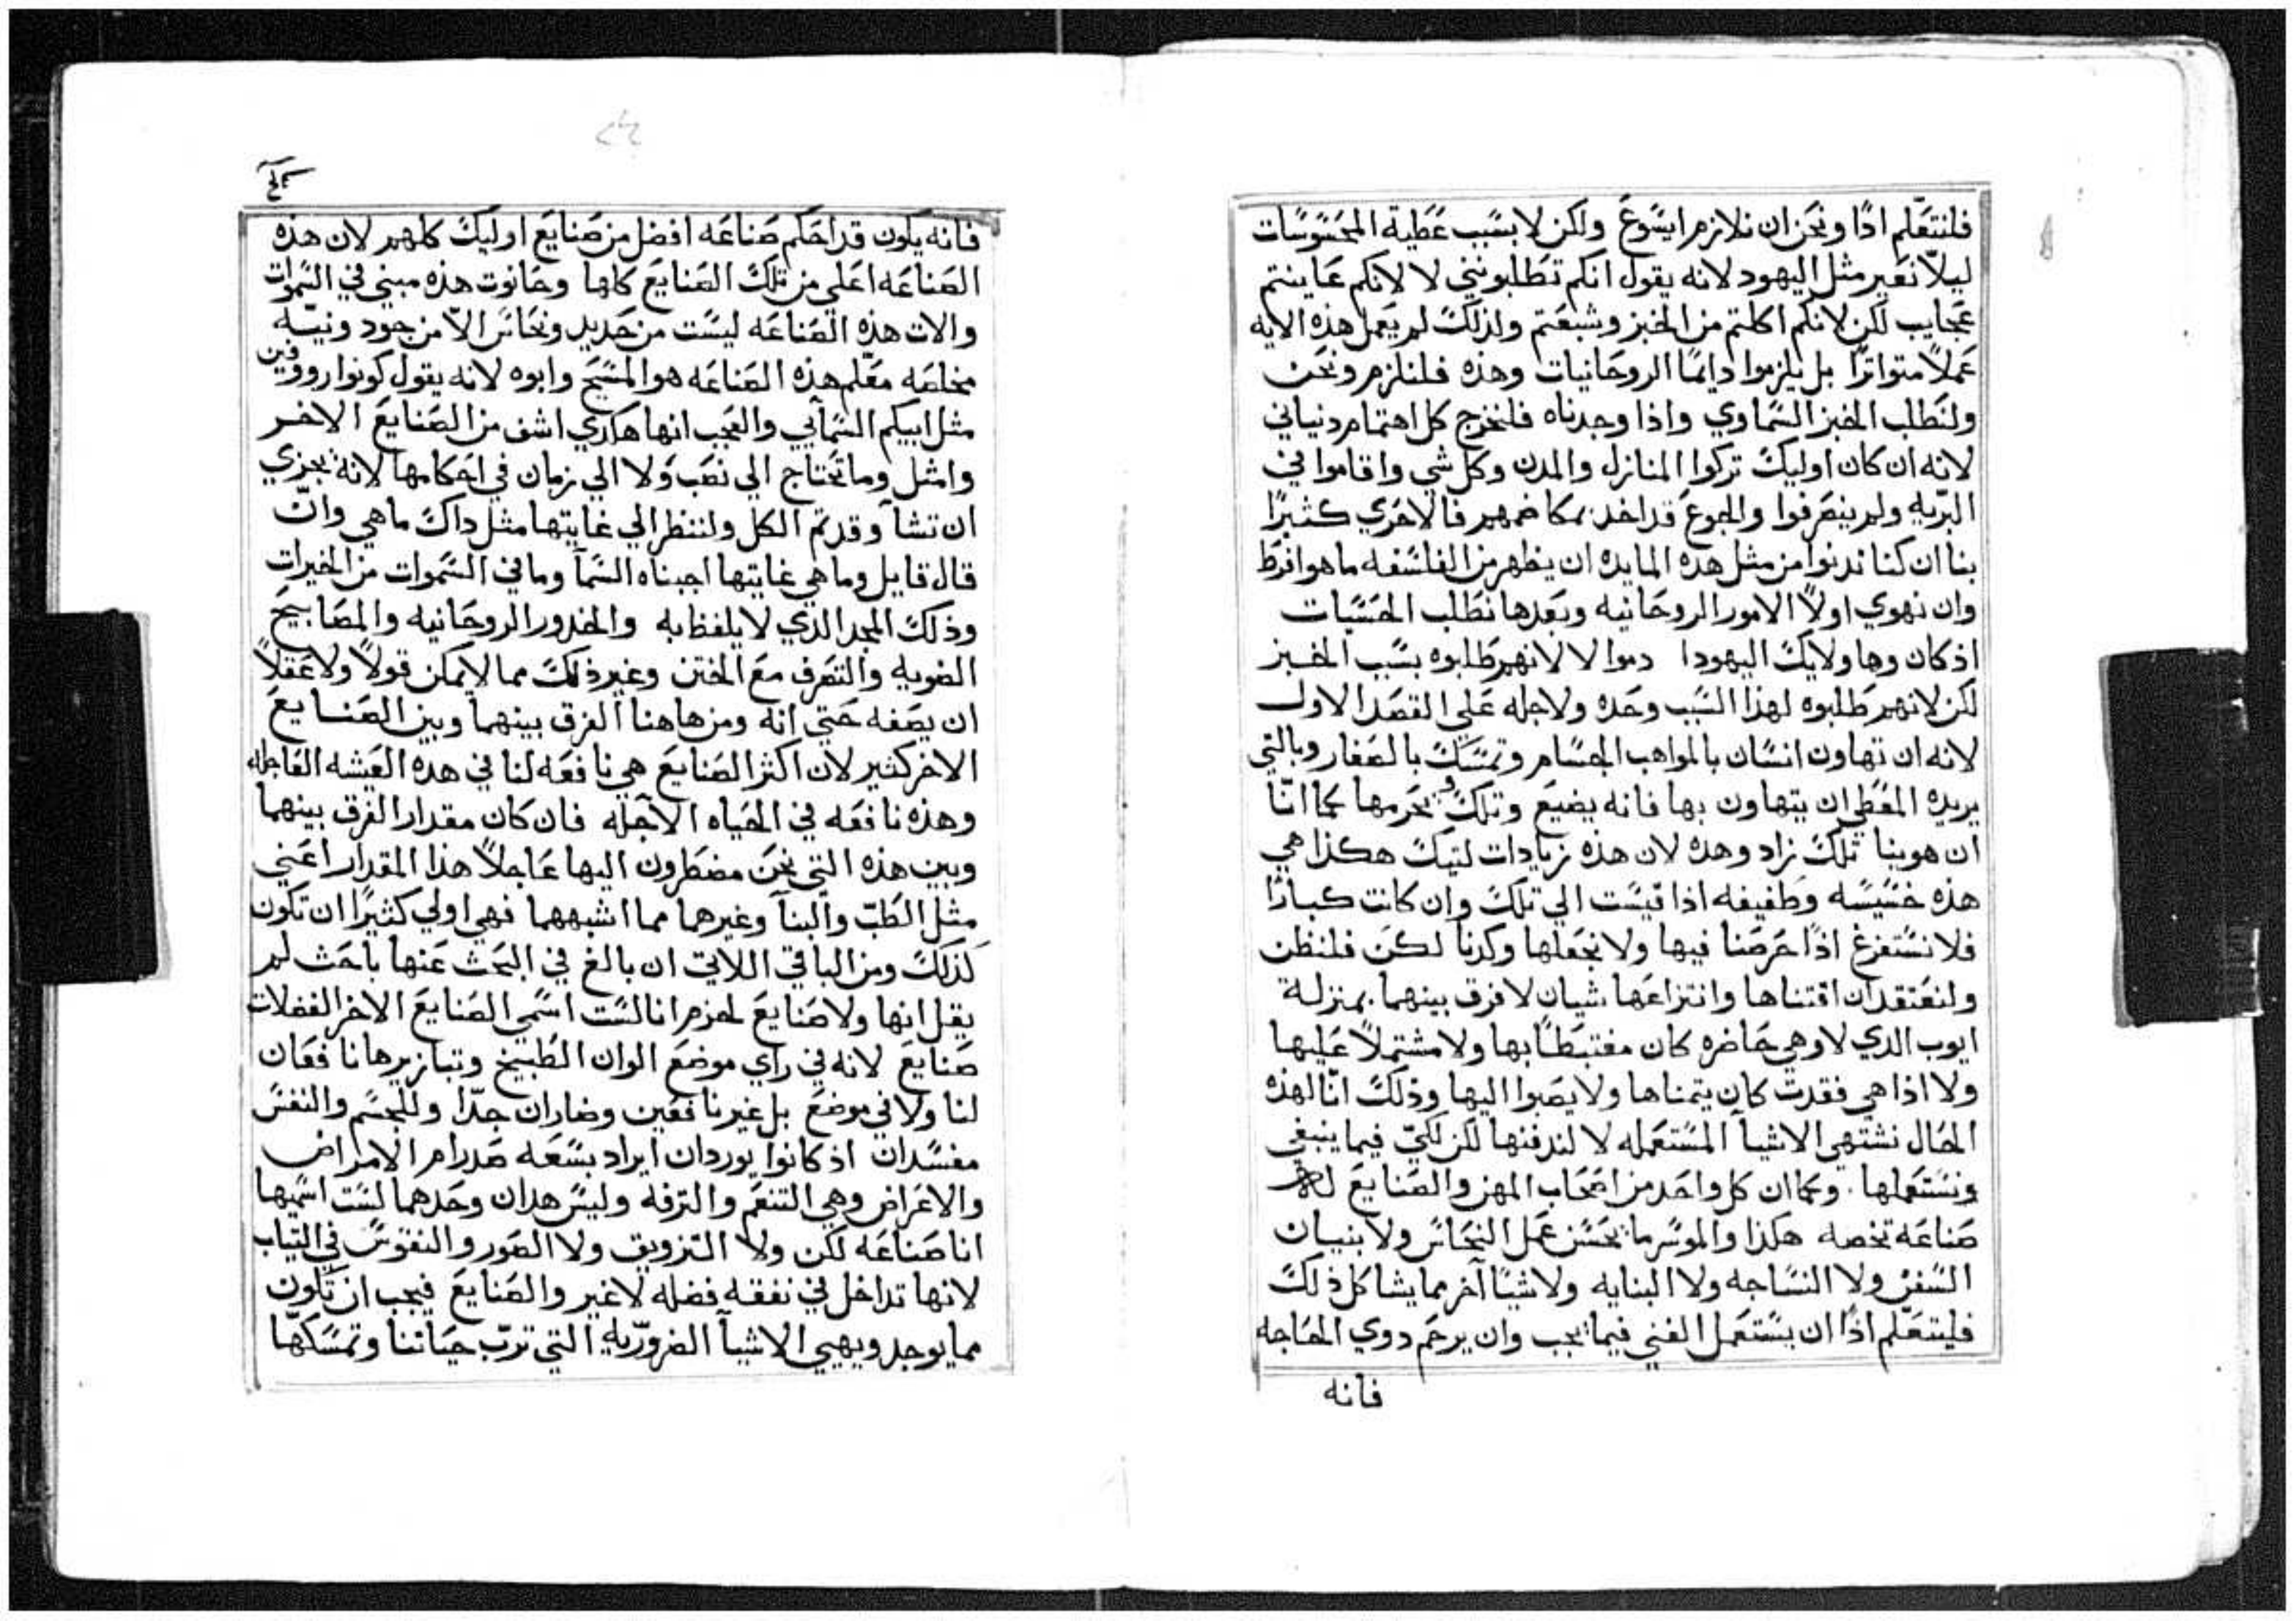 فلنتعلم اذًا ونحن ان نلازم ايسوع ولكن لا بسبب عطية المحسوسات
ليلّا نعير مثل اليهود لانه يقول انكم تطلبونني لا لانكم عاينتم
عجايب لكن لانكم اكلتم من الخبز وشبعتم ولذلك لم يعمل هذه الايه
عملًا متواترًا بل يلزموا دايمًا الروحانيات وهذه فلنلزم ونحن
ولنطلب الخبز السماوي واذا وجدناه فلنخرج كل اهتمام دنياني
لانه ان كان اوليك تركوا المنازل والمدن وكل شي واقاموا في
البرّيه ولم ينصرفوا والجوع قد اخذ بمكاضمهم فالاحري كثيرًا
بنا ان كنا ندنوا من مثل هده المايده ان يظهر من الفلسفه ما هو افرط
وان نهوي اولًا الامور الروحانيه وبعدها نطلب الحسيات
اذ كان وهاولايك اليهود ا دموا لا لانهم طلبوه بسبب الخبز
لكن لانهم طلبوه لهذا السبب وحده ولاجله علي القصد الاول
لانه ان تهاون انسان بالمواهب الجسام وتمسك بالصغار وبالتي
يريده المعطي ان يتهاون بها فانه يضيع وتلك يحرمها كما انّا
ان هوينا تلك زاد وهذه لان هذه زيادات لتيك هكذا هي
هذه خسيسه وطفيفه اذا قيست الي تلك وان كانت كبارًا
فلا نستفرغ اذًا حرصنا فيها ولا نجعلها وكدنا لكن فلنظن
ولنعتقد ان اقتناها وانتزاعها شيان لا فرق بينهما بمنزلة
ايوب الدي لا وهي حاضره كان مغتبطًا بها ولا مشتملًا عليها
ولا اذا هي فقدت كان يتمناها ولا يصبوا اليها وذلك انّا لهذه
الحال نشتهي الاشيآ المستعمله لا لندفنها لكن لكي فيما ينبغي
ونستعملها. وكما ان كل واحد من اصحاب المهن والصنايع له
صناعه تخصه هكذا والموسر ما يحسن عمل النحاس ولا بنيان
السفن ولا النساجه ولا البنايه ولا شيًا آخر مما يشاكل ذلك
فليتعلم اذًا ان يستعمل الغني فيما يجب وان يرحم دوي الحاجه
فانه
فانه يكون قد احكم صناعه افضل من صنايع اوليك كلهم لان هذه
الصناعه اعلي من تلك الصنايع كلها وحانوت هذه مبني في السموات
والات هذه الصناعه ليست من حديد ونحاس الّا من جود ونيّه
مخلصه معلم هذه الصناعه هو المسيح وابوه لانه يقول كونوا روفين
مثل ابيكم السمآيي والعجب انها هكذي اشف من الصنايع الاخر
وامثل وما تحتاج الي نصب ولا الي زمان في احكامها لانه يجزي
ان تشآ وقد تم الكل ولننظر الي غايتها مثل داك ما هي وانّ
قال قايل وما هي غايتها اجبناه السمآ وما في السموات من الخيرات
وذلك المجد الدي لا يلفظ به والخدور الروحانيه والمصابيح
الضويه والتصرف مع الختن وغير ذلك مما لا يمكن قولًا ولا عقلًا
ان يصفه حتي انه ومن هاهنا الفرق بينهما وبين الصنايع
الاخر كثير لان اكثر الصنايع هي نافعه لنا في هده العيشه العاجله
وهذه نافعه في الحياه الآجله فان كان مقدار الفرق بينهما
وبين هذه التي نحن مضطرون اليها عاجلًا هذا المقدار اعني
مثل الطبّ والبنآ وغيرهما مما اشبههما فهي اولي كثيرًا ان تكون
كذلك ومن الباقي اللاتي ان بالغ في البحث عنها باحث لم
يقل انها ولا صنايع لحزم انا لست اسمي الصنايع الاخر الفضلات
صنايع لانه في راي موضع الوان الطبيخ وتبازيرها نافعان
لنا ولا في موضع بل غير نافعين وضاران جدّا وللجسم والنفس
مفسدان اذ كانوا يوردان ايراد بسعه صدرام الامراض
والاعراض وهي التنعم والترفه وليس هدان وحدهما لست اسميها
انا صناعه لكن ولا التزويق ولا الصور والنقوش في التياب
لانها تداخل في نفقه فضله لا غير والصنايع فيجب ان تكون
مما يوجد ويهيي الاشيآ الضروريه التي تربّ حياتنا وتمسكها